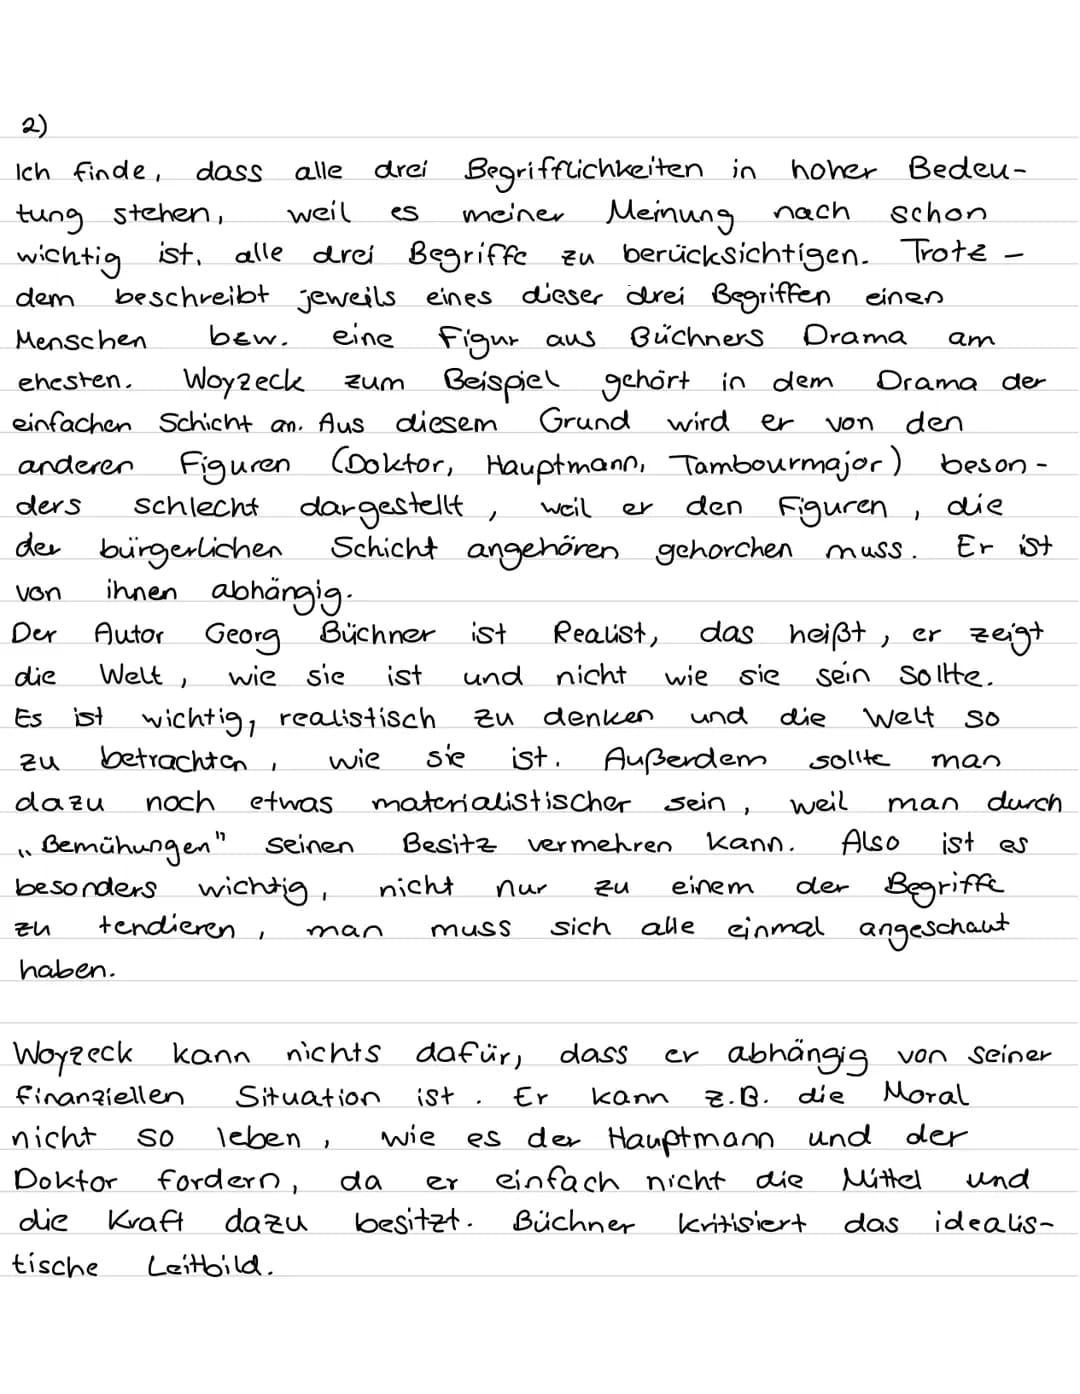 2)
Ich finde, dass alle drei Begrifflichkeiten in hoher Bedeu-
tung stehen, weil es meiner Meinung nach schon
wichtig ist, alle drei Begriffe zu berücksichtigen. Trotz-
dem beschreibt jeweils eines dieser drei Begriffen einen
Menschen bzw. eine Figur aus Büchners Drama am
ehesten. Woyzeck zum Beispiel gehört in dem Drama der
einfachen Schicht an. Aus diesem Grund wird er von den
anderen Figuren (Doktor, Hauptmann, Tambourmajor) beson-
ders schlecht dargestellt, weil er den Figuren, die
der bürgerlichen Schicht angehören gehorchen muss. Er ist
von ihnen abhängig.
Der Autor Georg Büchner ist Realist, das heißt, er zeigt
die Welt, wie sie ist und nicht wie sie sein sollte.
Es ist wichtig, realistisch zu denken und die Welt so
zu betrachten, wie sie ist. Außerdem sollte man
dazu noch etwas materialistischer sein, weil man durch
„Bemühungen" seinen Besitz vermehren kann. Also ist es
besonders wichtig, nicht nur zu einem der Begriffe
zu tendieren, man muss sich alle einmal angeschaut
haben.
Woyzeck kann nichts dafür, dass er abhängig von seiner
finanziellen Situation ist. Er kann z.B. die Moral
nicht so leben, wie es der Hauptmann und der
Doktor fordern, da er einfach nicht die Mittel und
die Kraft dazu besitzt. Büchner kritisiert das idealis-
tische Leitbild.